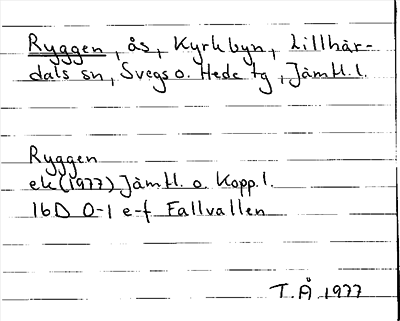 Ryggen, ås, Kyrkbyn, Lillhär-
dals sn, Svegs o. Hede tg, Jämtl. l.
Ryggen
ek (1977) Jämtl. o. Kopp. l.
16D 0-1 e-f Fallvallen
T. Å 1977